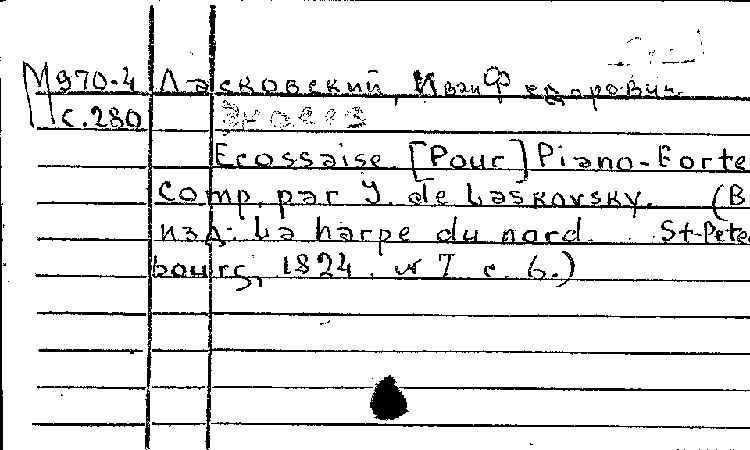 М970.4 Ласковский, Иван Федорович.
с.280 Экосез
Ecossaise [Pour] Piano-Forte
comp. par J. de Laskovsky. (В
изд: La harpe du nord. St-Pete
bourg, 1824. № 7 с. 6.)